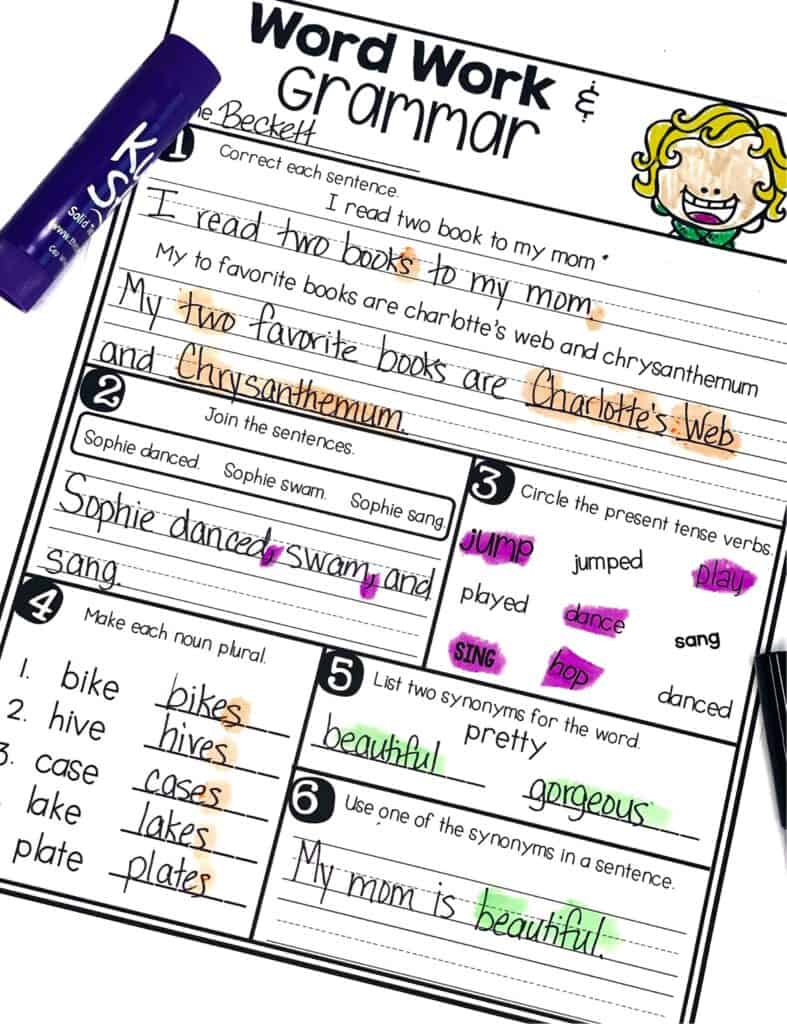 Word Work &
Grammar
Beckett
1 Correct each sentence.
I read two book to my mom
I read two books to my mom.
My to favorite books are charlotte's web and chrysanthemum
My two favorite books are Charlotte's Web
and Chrysanthemum.
2 Join the sentences.
Sophie danced. Sophie swam. Sophie sang.
Sophie danced, swam, and
sang.
3 Circle the present tense verbs.
jump jumped play
played dance sang
SING hop danced
4 Make each noun plural.
1. bike bikes
2. hive hives
3. case cases
lake lakes
plate plates
5 List two synonyms for the word.
pretty
beautiful gorgeous
6 Use one of the synonyms in a sentence.
My mom is beautiful.
Solid